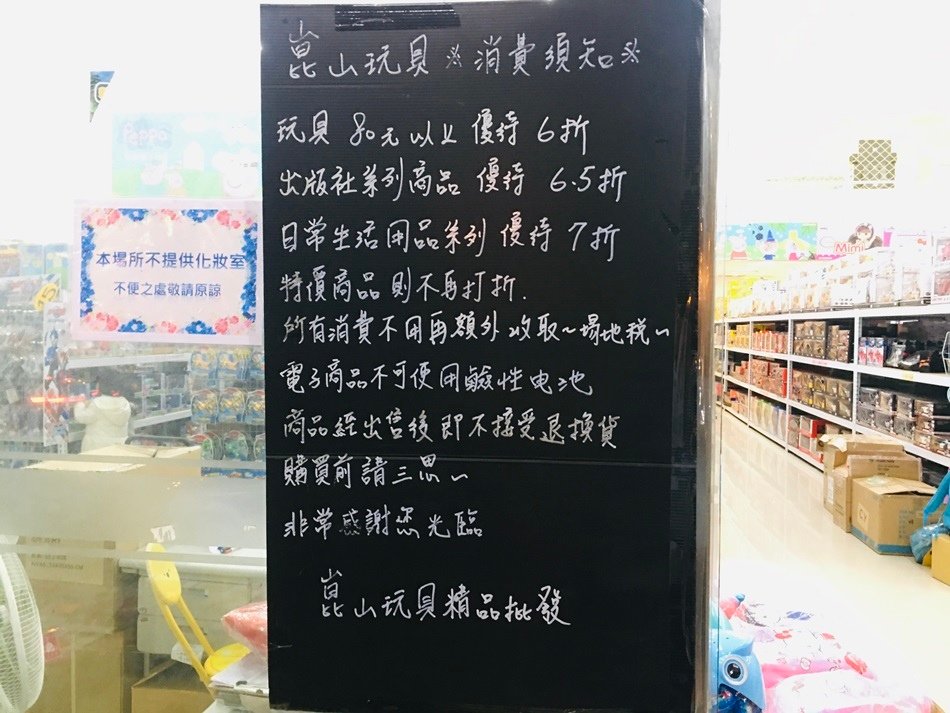 崑山玩具※消費須知※
玩具 80元以上 優待 6折
出版社系列商品 優待 6.5折
日常生活用品系列 優待 7折
特價商品則不再打折.
所有消費不用再額外收取~場地稅~
電子商品不可使用鹼性电池
商品經出售後即不接受退換貨
購買前請三思~
非常感謝您光臨
崑山玩具精品批發
本場所不提供化妝室
不便之處敬請原諒
Peppa
Mimi